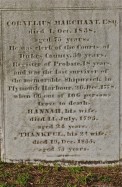 CORNELIUS MARCHANT, ESQ
died 1, Oct. 1838,
aged 75 years.
He was clerk of the Courts of
Dukes County, 30 years,
Register of Probate, 18 years,
and was the last survivor of
the memorable Shipwreck in
Plymouth Harbour, 26, Dec. 177
when 69 out of 106 persons
froze to death.
HANNAH, his wife.
died 11, July, 1795,
aged 24 years.
THANKFUL, his 2d wife
died 19, Dec. 1845,
aged 73 years.